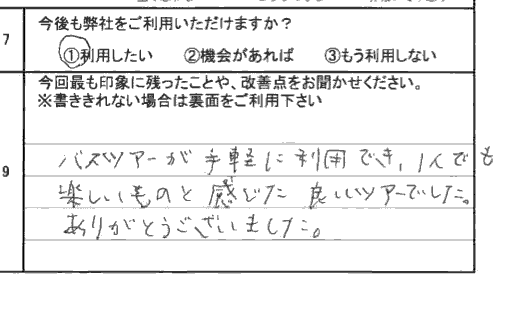 7
今後も弊社をご利用いただけますか?
①利用したい ②機会があれば ③もう利用しない
9
今回最も印象に残ったことや、改善点をお聞かせください。
※書ききれない場合は裏面をご利用下さい
バスツアーが手軽に利用でき、1人でも
楽しいものと感じた良いツアーでした。
ありがとうございました。